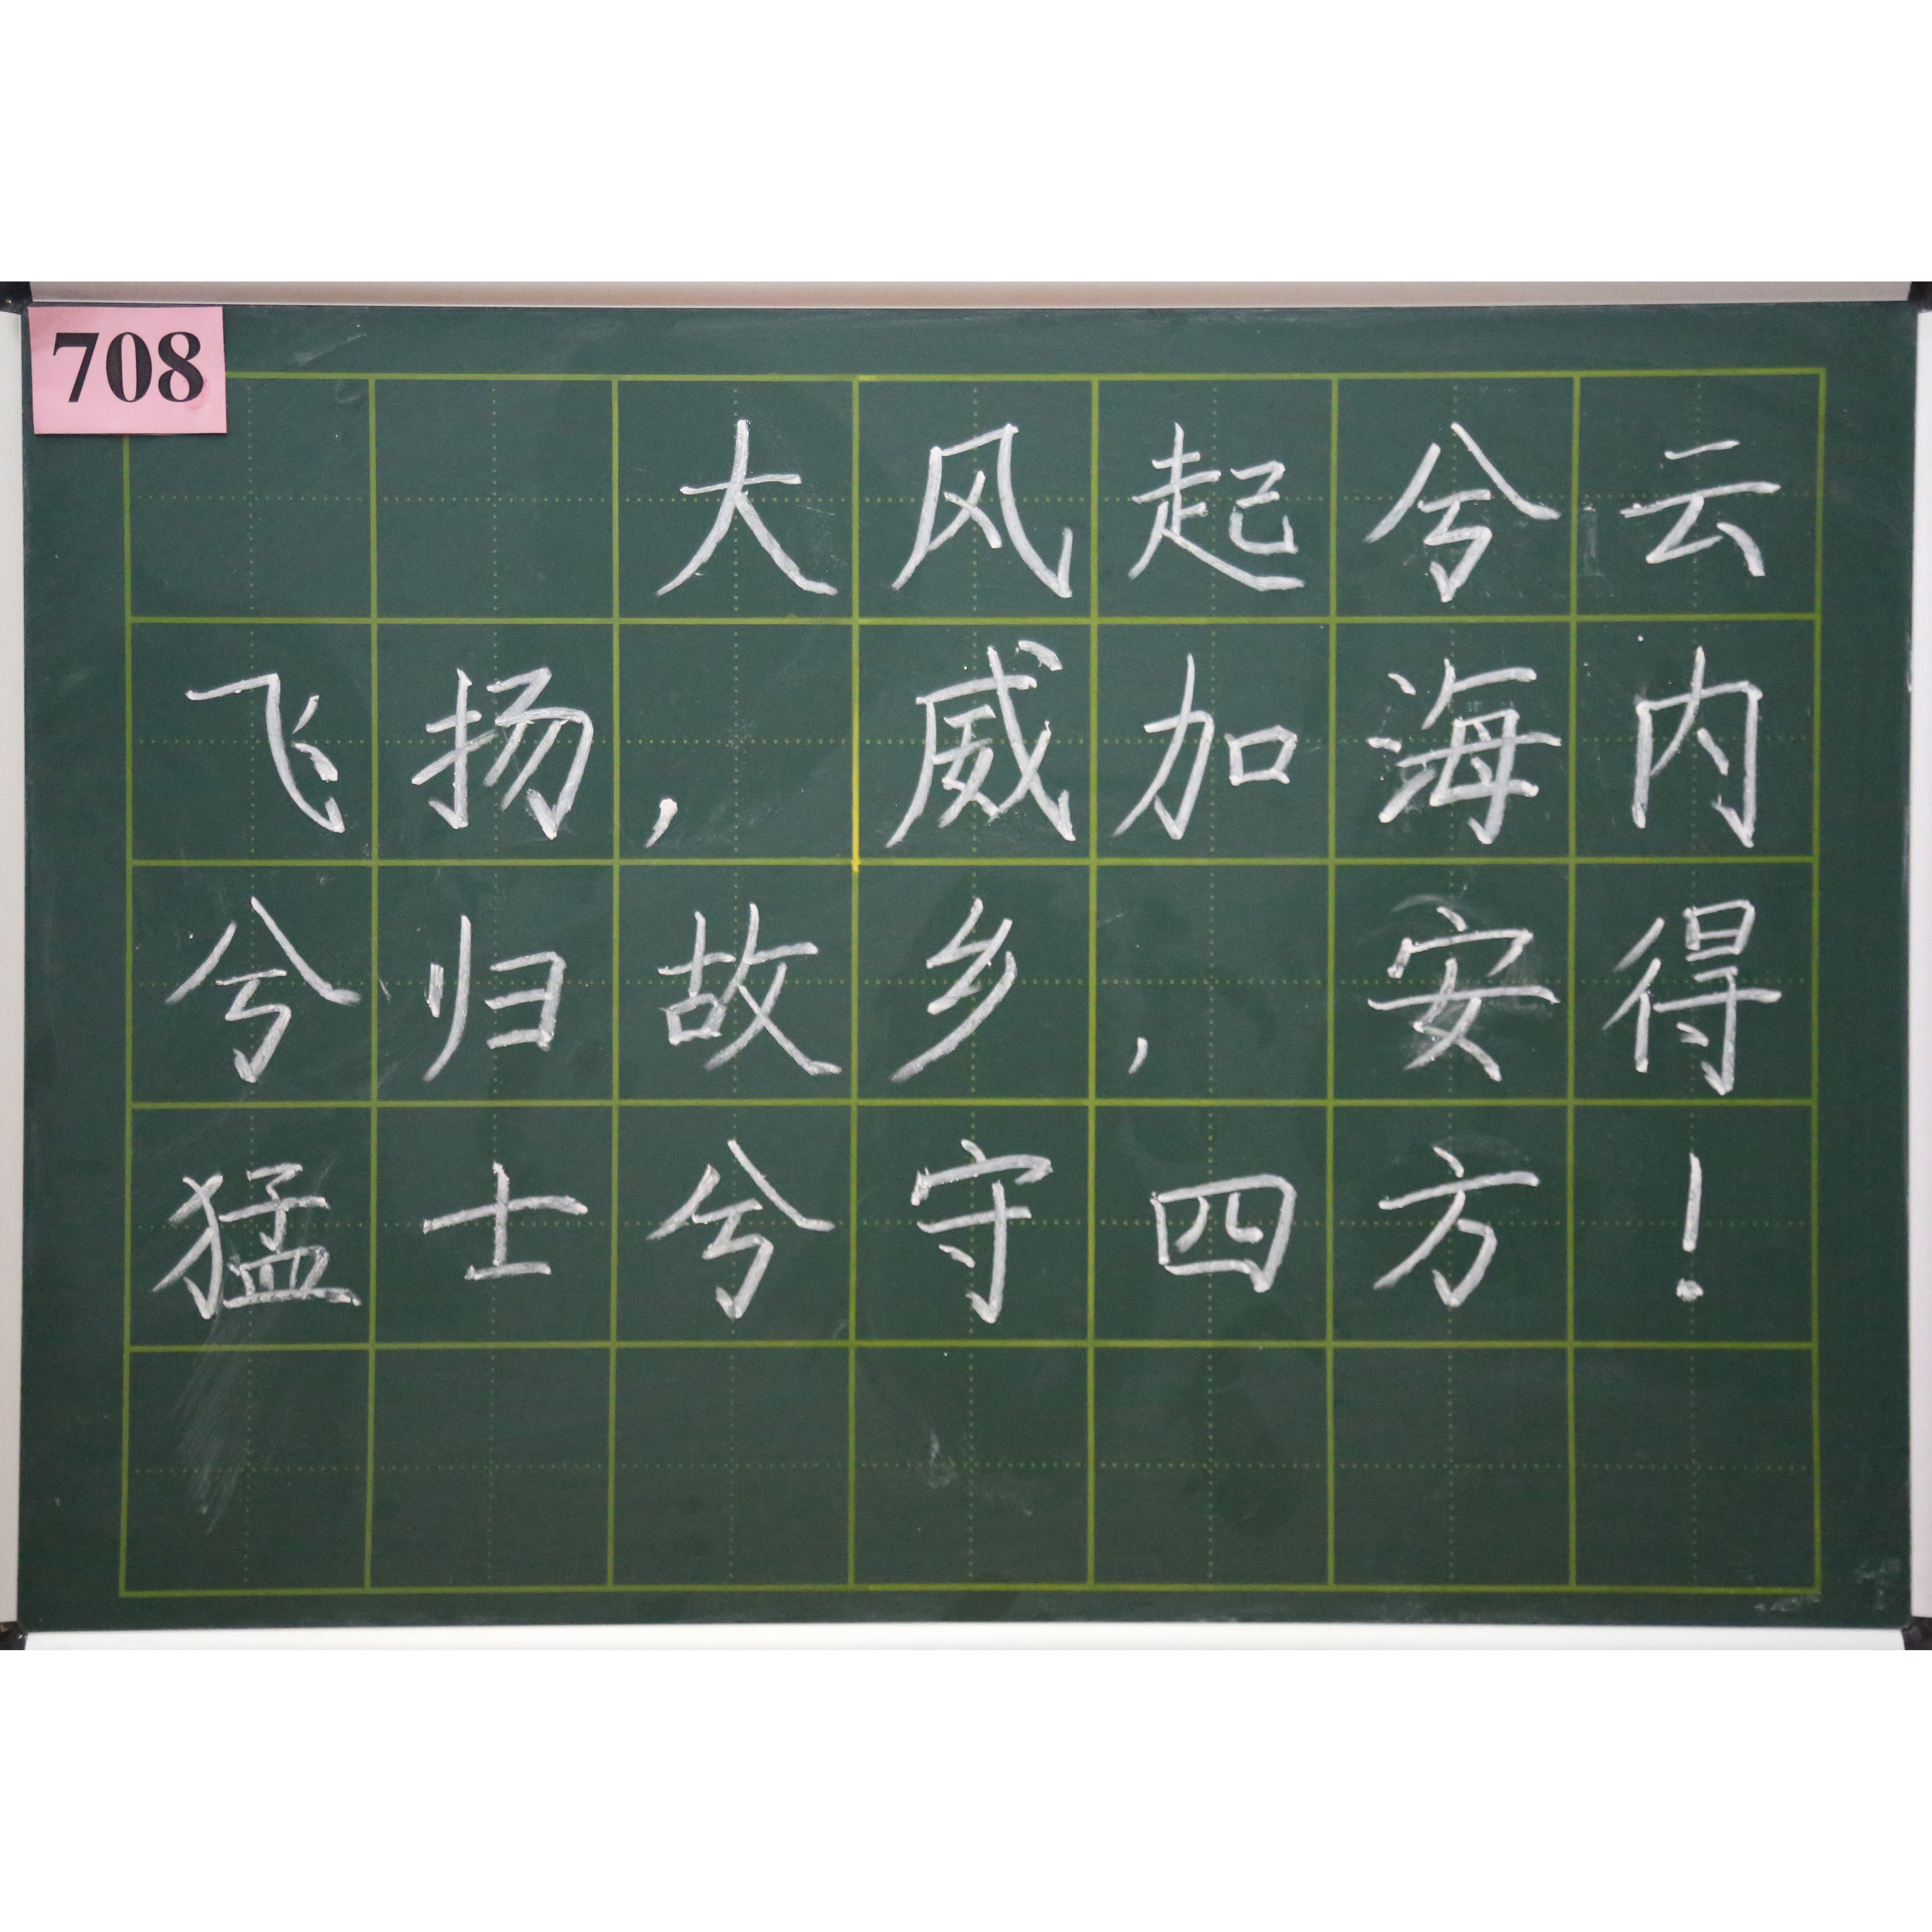 708
大风起兮云
飞扬，威加海内
兮归故乡，安得
猛士兮守四方！